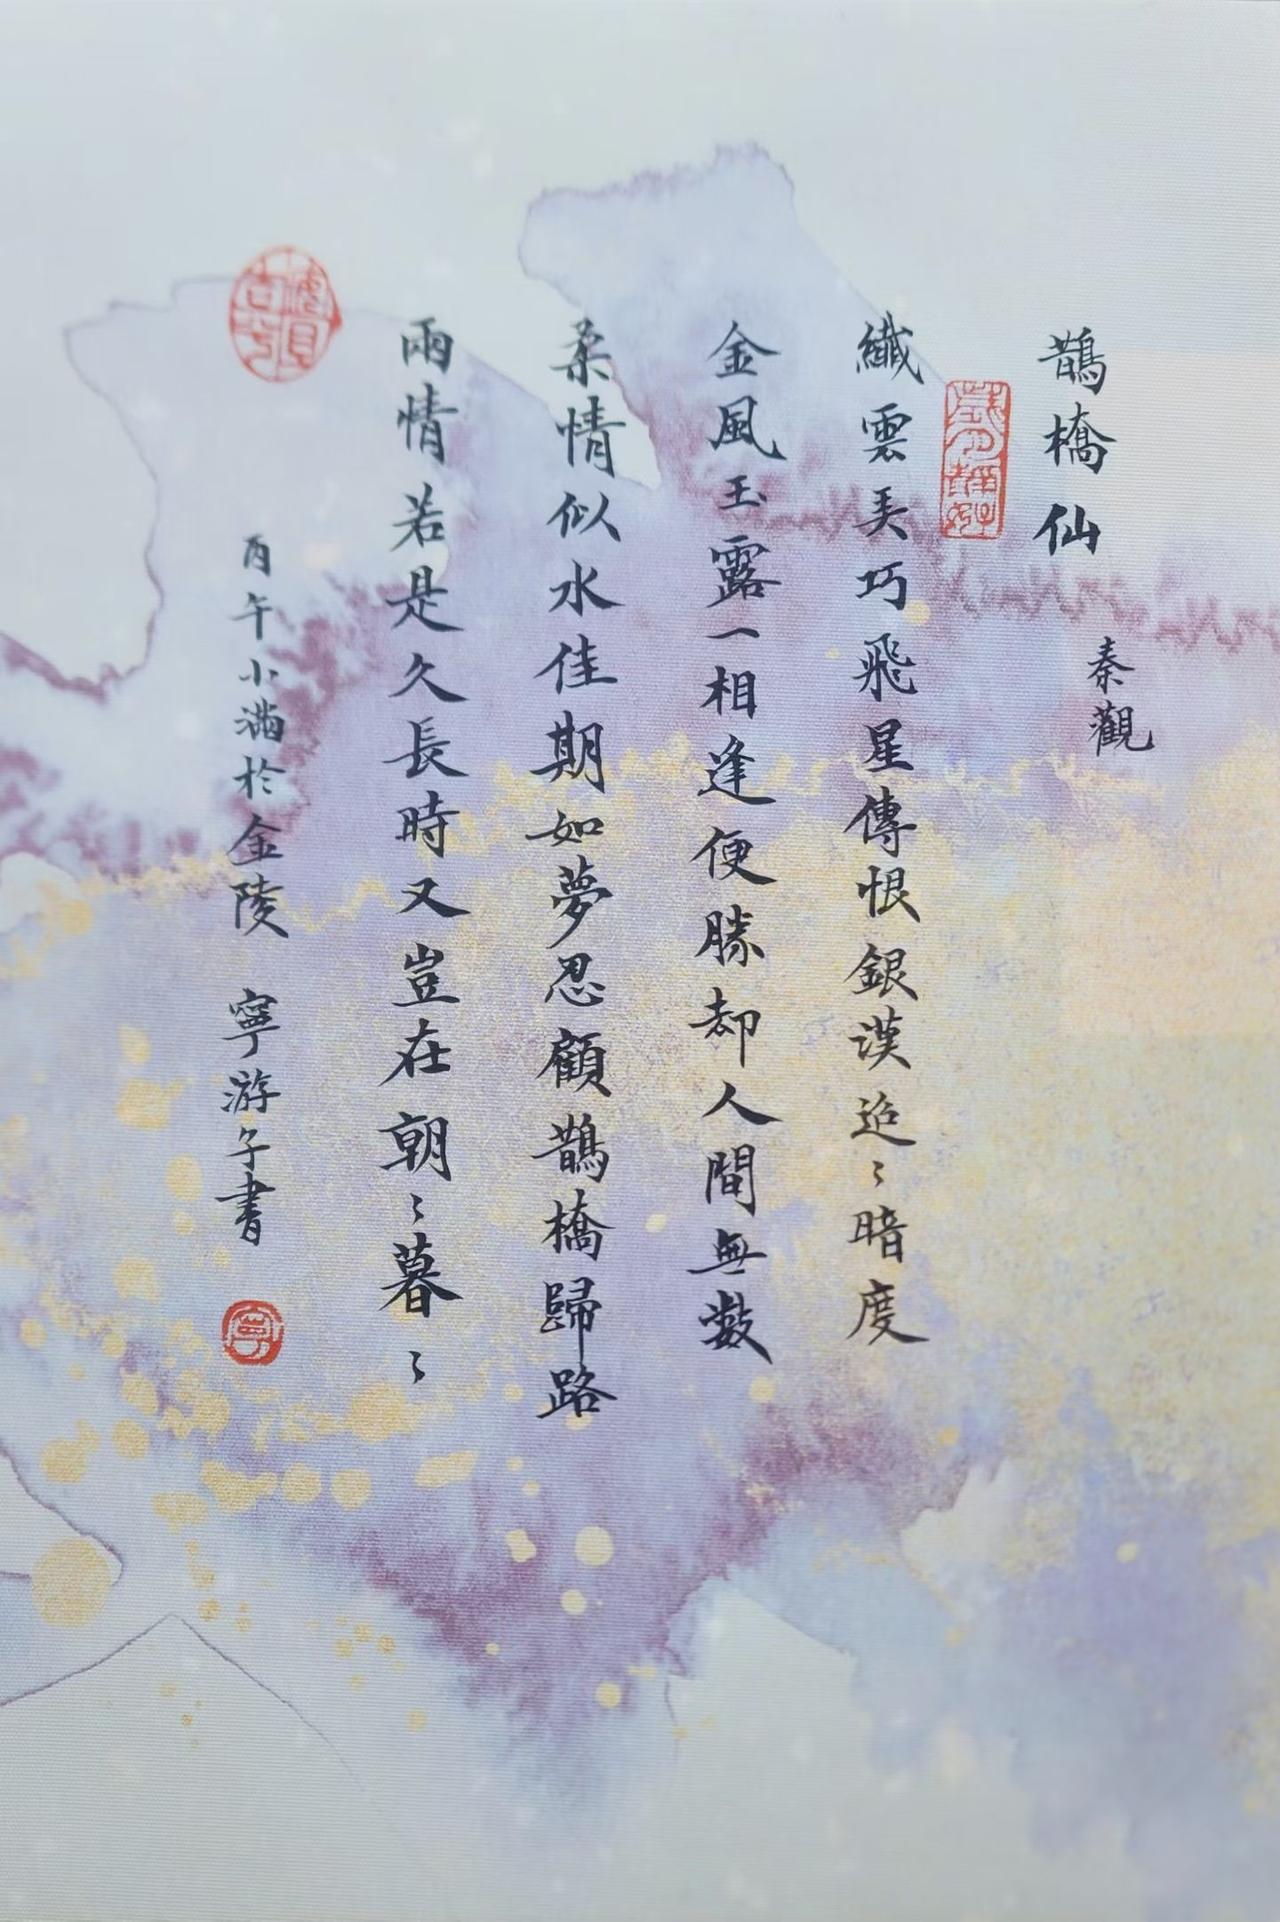 鵲橋仙
秦觀
歲月靜好
纖雲弄巧飛星傳恨銀漢迢〻暗度
金風玉露一相逢便勝却人間無數
柔情似水佳期如夢忍顧鵲橋歸路
兩情若是久長時又豈在朝〻暮〻
丙午小滿於金陵 寧游子書
寧